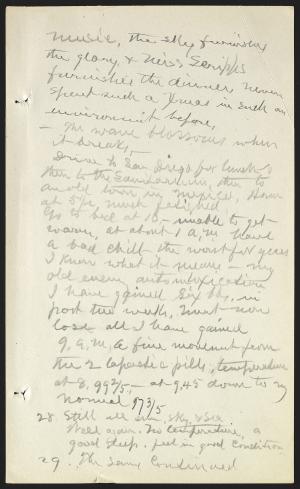 music, the sky furnishes
the glory & Miss Scripps
furnishes the dinner never
spent such a Xmas in such an
environment before,
– The wave blossoms when
it breaks,
Drive to San Diego for lunch &
then to the Sanitarium, then to
an old town in Mexico, Home
at 5 P.M., much fatigued,
Go to bed at 10 – unable to get
warm, at about 1 a.m. have
a bad chill the worst for years
I know what it means – my
old enemy autointoxication
I have gained six lbs, in
past two weeks, must now
lose all I have gained
9, a.m, a fine movement from
the 2 cathartic pills, temperature
at 8, 99 2/5, – at 9,45 down to my
normal 97 3/5
28. Still all sun, sky, & sea
Well again. No temperature, a
good sleep. feel in good condition
29. The same continued